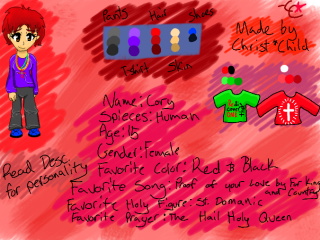 Pants Hair Shoes
T-shirt Skin
Made by
Christ Child
Name: Cory
Spieces: Human
Age: 15
Gender: Female
Read Desc
for personality
Favorite Color: Red & Black
Favorite Song: Proof of your Love by For King
and Country
Favorite Holy Figure: St. Domanic
Favorite Prayer: The Hail Holy Queen